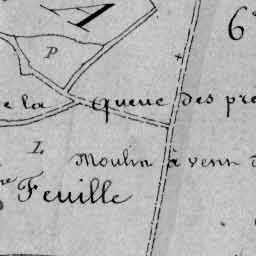 A
6
P
e la queue des pre
L
Moulin à venn d
Feuille